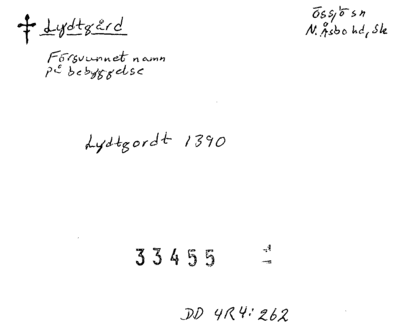 Lydtgård
Össjö sn
N. Åsbo hd, Sk
Försvunnet namn
på bebyggelse
Lydtgordt 1390
33455
DD 4R4: 262